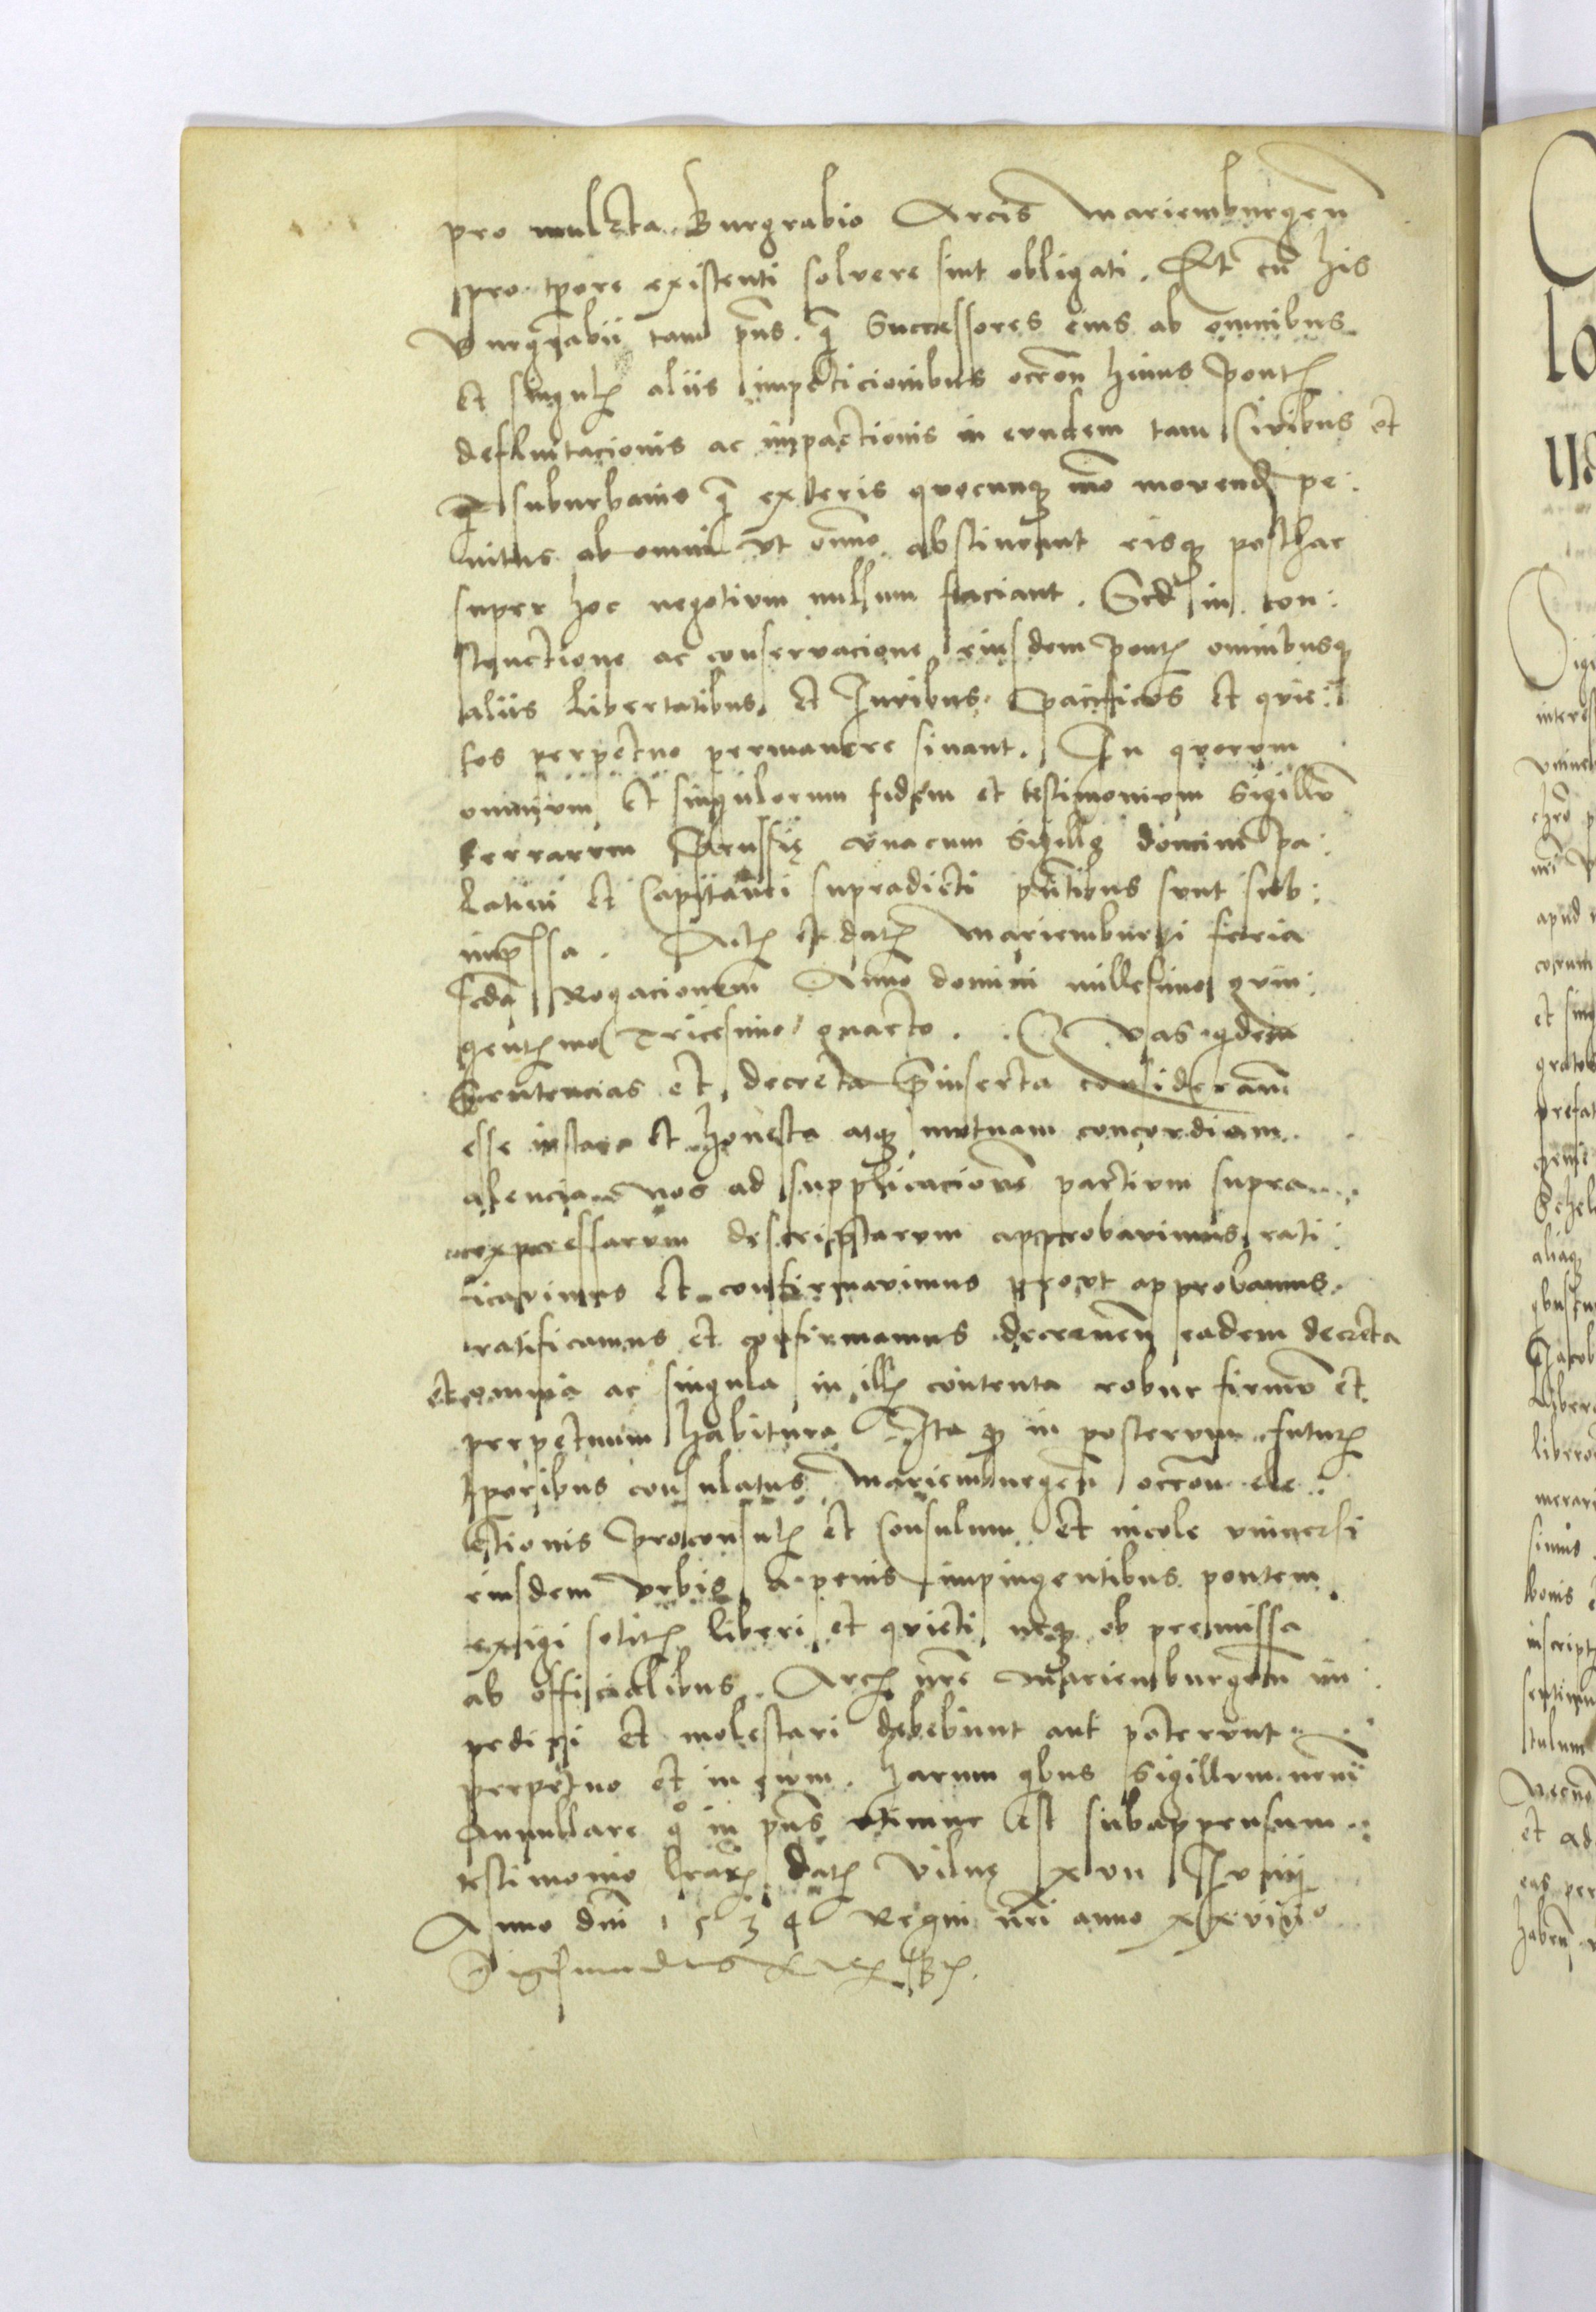 pro mulcta Burgrabio Arcis Mariemburgen̄
pro tp̄ore existenti solvere sint obligati. Et cū his
Burgrabii tam p̄ns. q̄ Successores eius ab omnibus
et singulꝭ aliis impeticionibus occōn huius Pontꝭ
defluitacionis ac impactionis in eundem tam Civibus et
q̄ suburbanis q̄ exteris quocunqꝫ mō movendꝭ pe:
nitus ab omni ut om̄no abstineant eisqꝫ posthac
super hoc negotium nullum faciant. Sed in con:
structione ac conservacione eiusdem Pontꝭ omnibusqꝫ
aliis libertatibus et Iuribus Pacificos et quie:
tos perpetuo permanere sinant. In quorum
omnium et singulorum fidem et testimonium Sigillū
terrarum Prussię unacum Sigillo domini Pa:
latini et Capitanei supradicti p̄ntibus sunt sub:
imp̄ssa. Actꝭ et datꝭ Mariemburgi feria
scd̄a Rogacionem Anno domini millesimo quin:
gentꝭmo Tricesimo quarto. Quas qdem
Sentencias et decreta p̄inserta consideran̄
esse iusta et honesta atqꝫ mutuam concordiam
alencia nos ad supplicacionē partium supra
expressarum descriptarum approbavimus rati
ficavimus et confirmavimus prout approbamus
ratificamus et confirmamus decernen̄ eadem decreta
et omnia ac singula in illꝭ contenta robur firmū et
perpetuum habitura Ita qꝫ in posterum futurꝭ
tp̄oribus consulatus Mariemburgen̄ occōn ele
ctionis Proconsulꝭ et Consulum et incole universi
eiusdem Urbis a penis impingentibus pontem
exigi solitꝭ liberi et quieti neqꝫ ob premissa
ab officialibus Arcꝭ nrē Mariemburgen̄ im
pediri et molestari debebunt aut poterunt
perpetuo et in evum. Harum qbus Sigillum nrm̄
Annullare qͦ in p̄ns utimur est subappensum
testimonio lrārꝭ datꝭ Vilnę xvii Junii
Anno dn̄i 1534 Regni nrī anno xxviiiº
Sigismundus Rex sst.